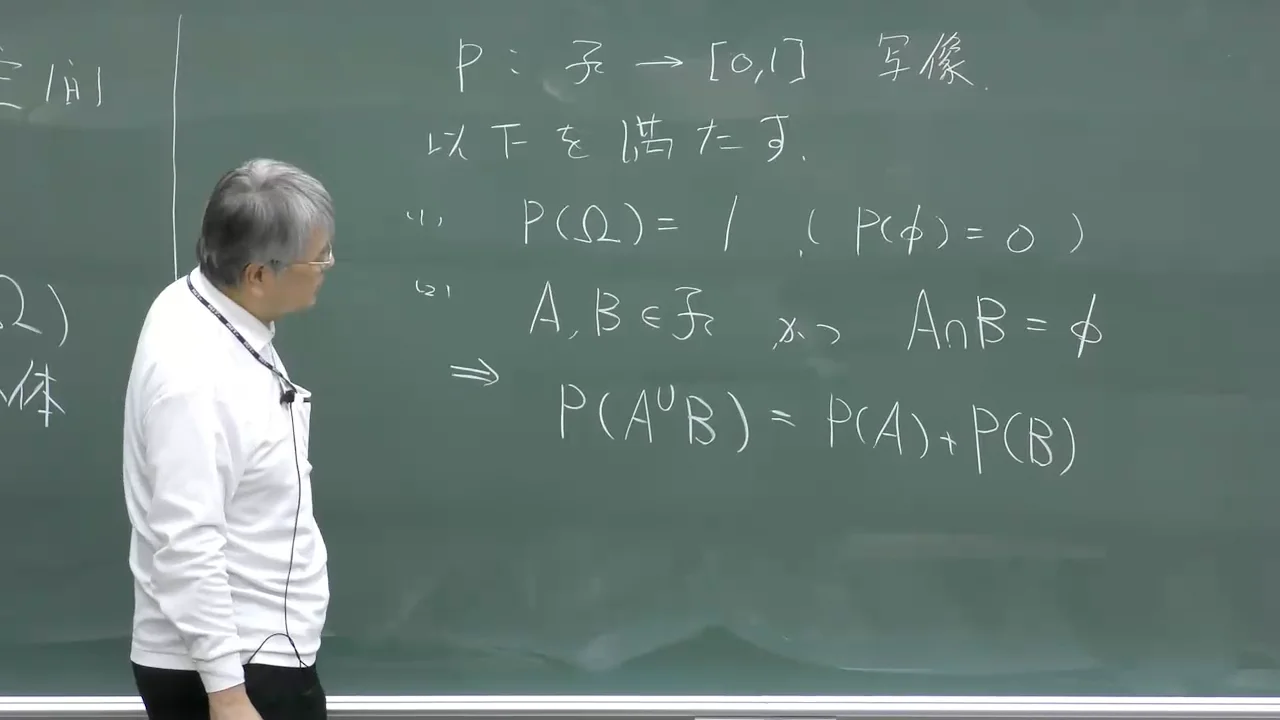 空間
Ω)
体
P : 𝓕 → [0,1] 写像.
以下を満たす.
(1) P(Ω) = 1 , ( P(φ) = 0 )
(2) A, B ∈ 𝓕 かつ A∩B = φ
⇒ P(A∪B) = P(A) + P(B)